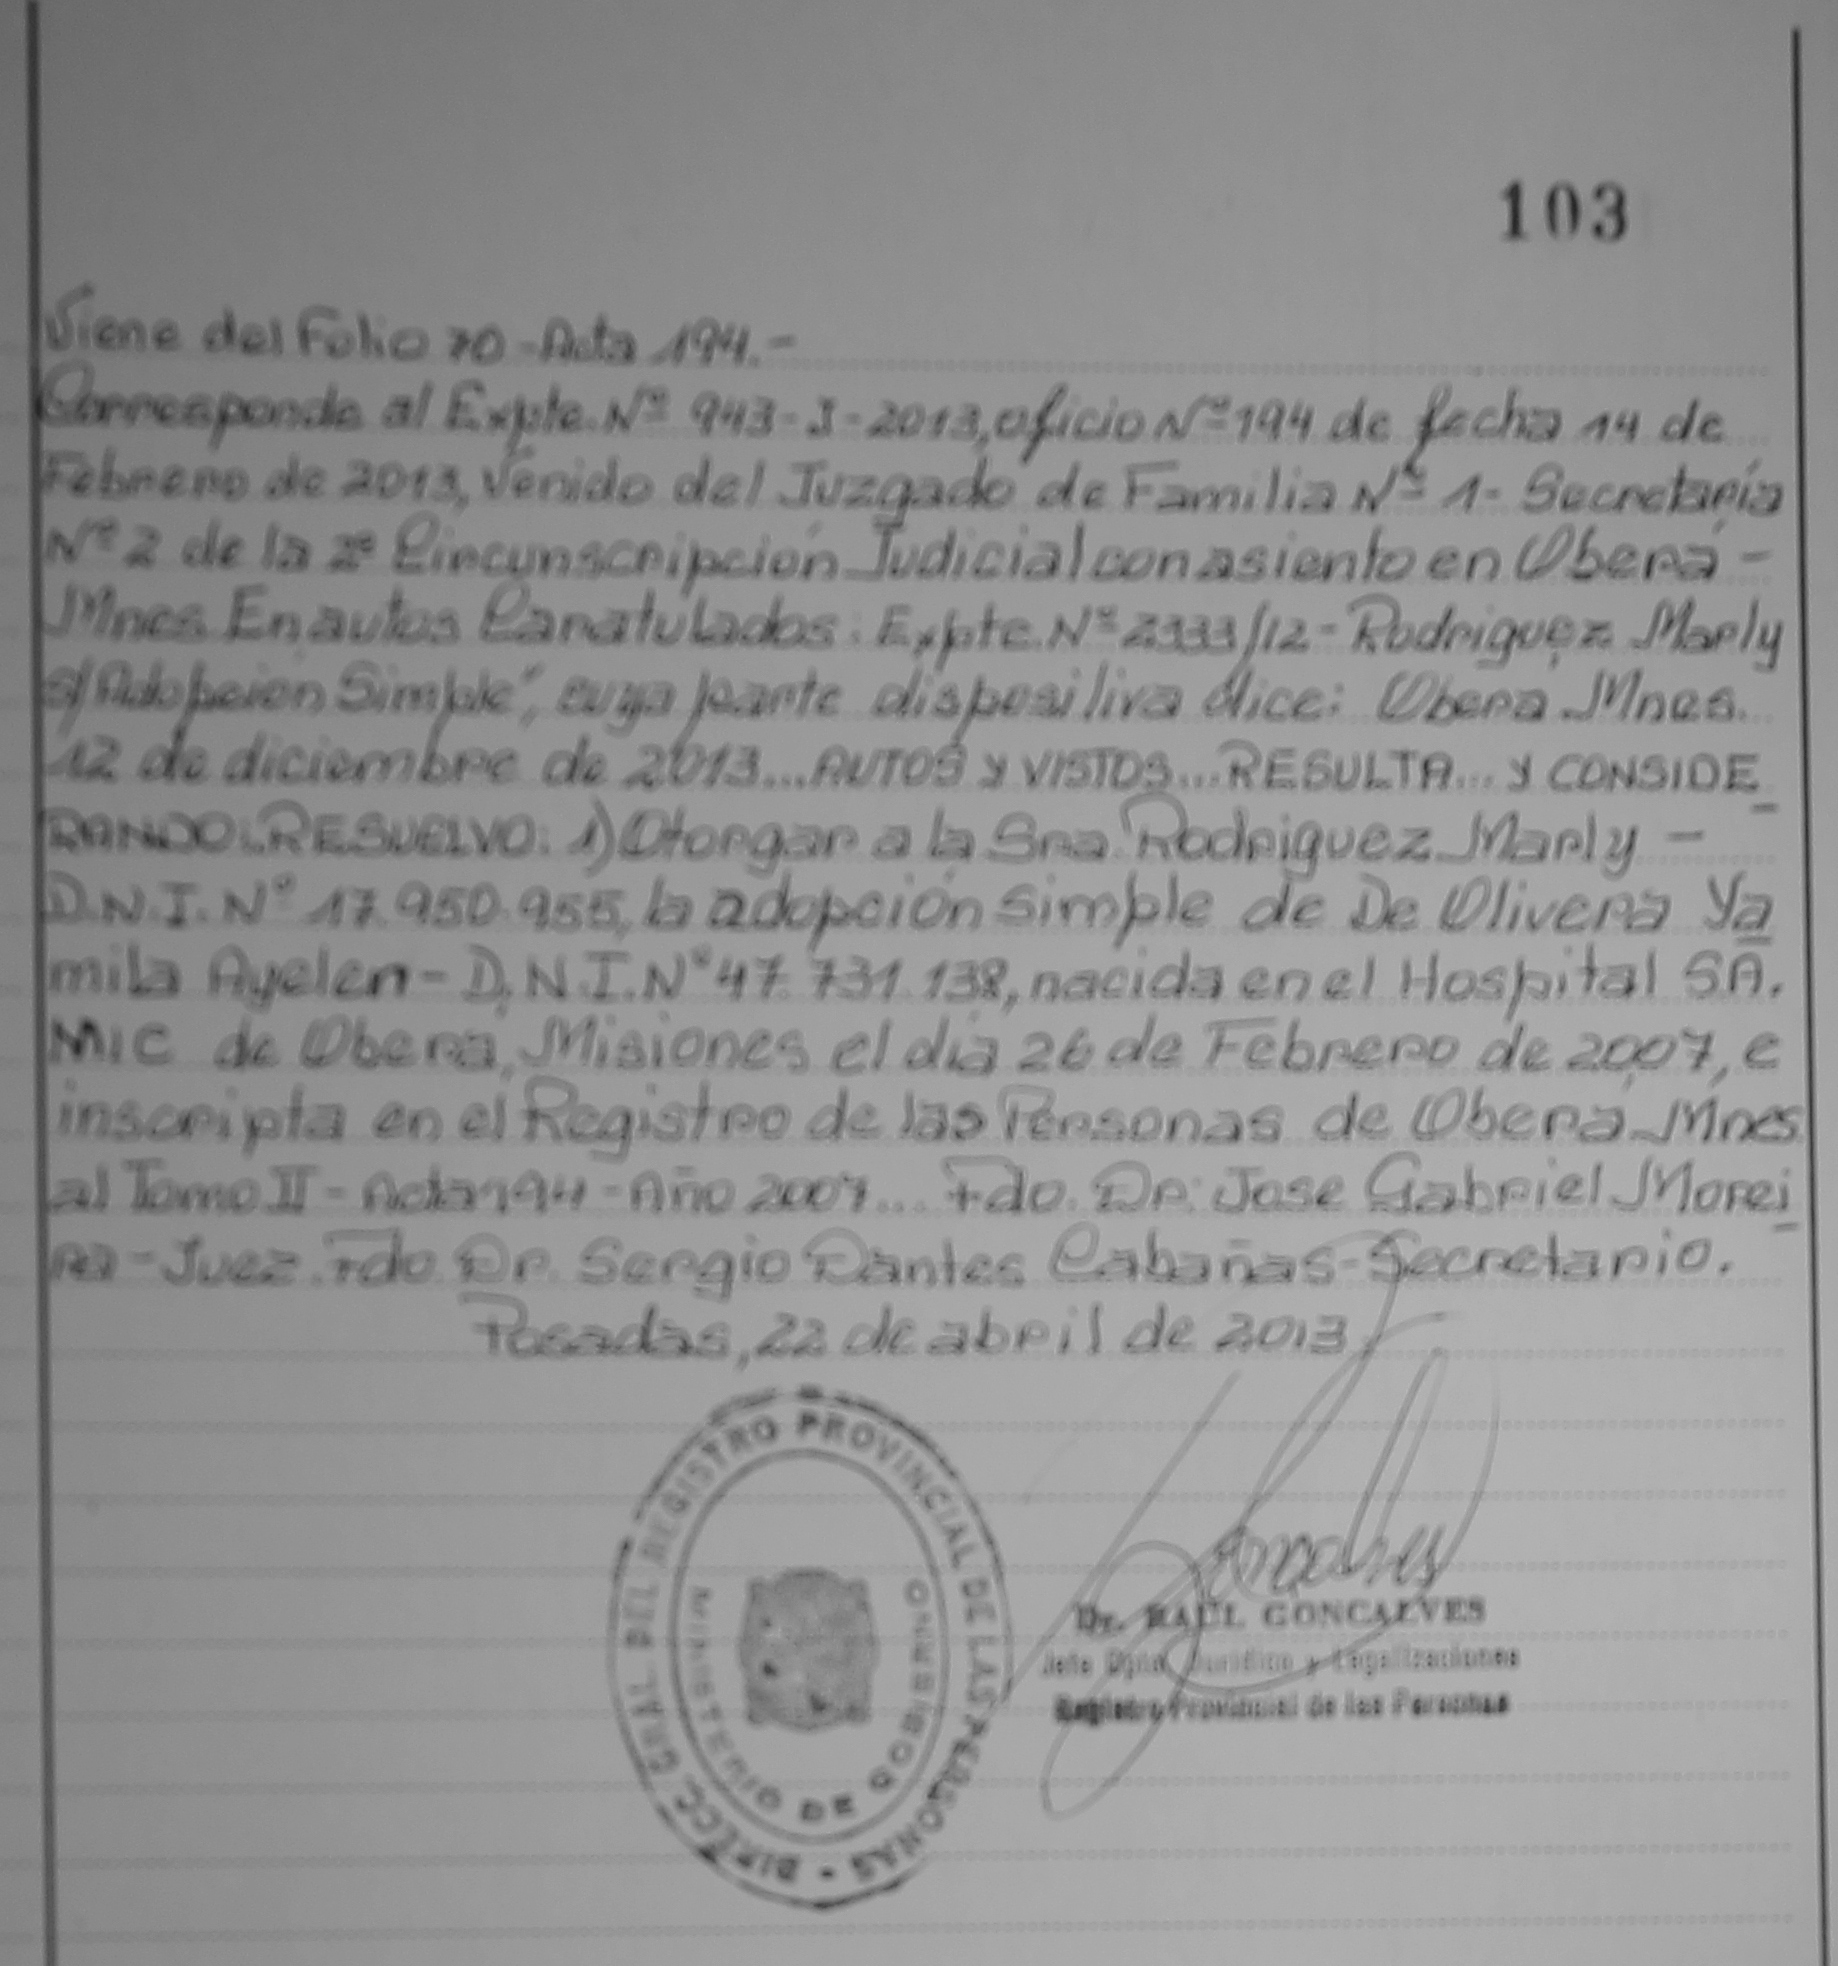 103
Viene del Folio 70 - Acta 194.-
Corresponde al Expte. Nº 943-J-2013, oficio Nº 194 de fecha 14 de
Febrero de 2013, Venido del Juzgado de Familia Nº 1- Secretaría
Nº 2 de la 2º Circunscripción Judicial con asiento en Oberá -
Mnes. En autos Caratulados: Expte. Nº 2333/12 - Rodriguez Marly
s/ Adopción Simple", cuya parte dispositiva dice: Oberá Mnes.
12 de diciembre de 2013... AUTOS y VISTOS... RESULTA... y CONSIDE
RANDO: RESUELVO: 1) Otorgar a la Sra. Rodriguez Marly -
D.N.I. Nº 17.950.955, la adopción simple de De Olivera Ya
mila Ayelen - D.N.I. Nº 47.731.138, nacida en el Hospital SA.
MIC de Oberá, Misiones el día 26 de Febrero de 2007, e
inscripta en el Registro de las Personas de Oberá Mnes
al Tomo II - Acta 194 - Año 2007... Fdo. Dr. Jose Gabriel Morei
ra - Juez. Fdo Dr. Sergio Dantes Cabañas - Secretario.
Posadas, 22 de abril de 2013.
DIRECC. GRAL. DEL REGISTRO PROVINCIAL DE LAS PERSONAS -
MINISTERIO DE GOBIERNO
Dr. RAUL GONCALVES
Jefe Dpto. Jurídico y Legalizaciones
Registro Provincial de las Personas